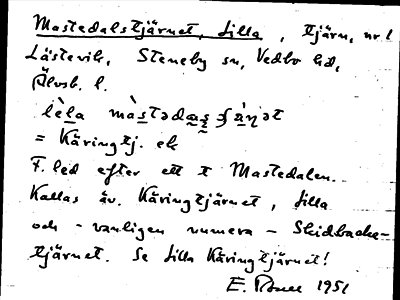 Mastedalstjärnet, Lilla, tjärn, nr 1
Lästevik, Steneby sn, Vedbo hd,
Älvsb. l.
= Käringtj. ek
F. led efter ett t Mastedalen.
Kallas äv. Käringtjärnet, Lilla
och - vanligen numera - Skidbacke-
tjärnet. Se Lilla Käringtjärnet!
E. 1951